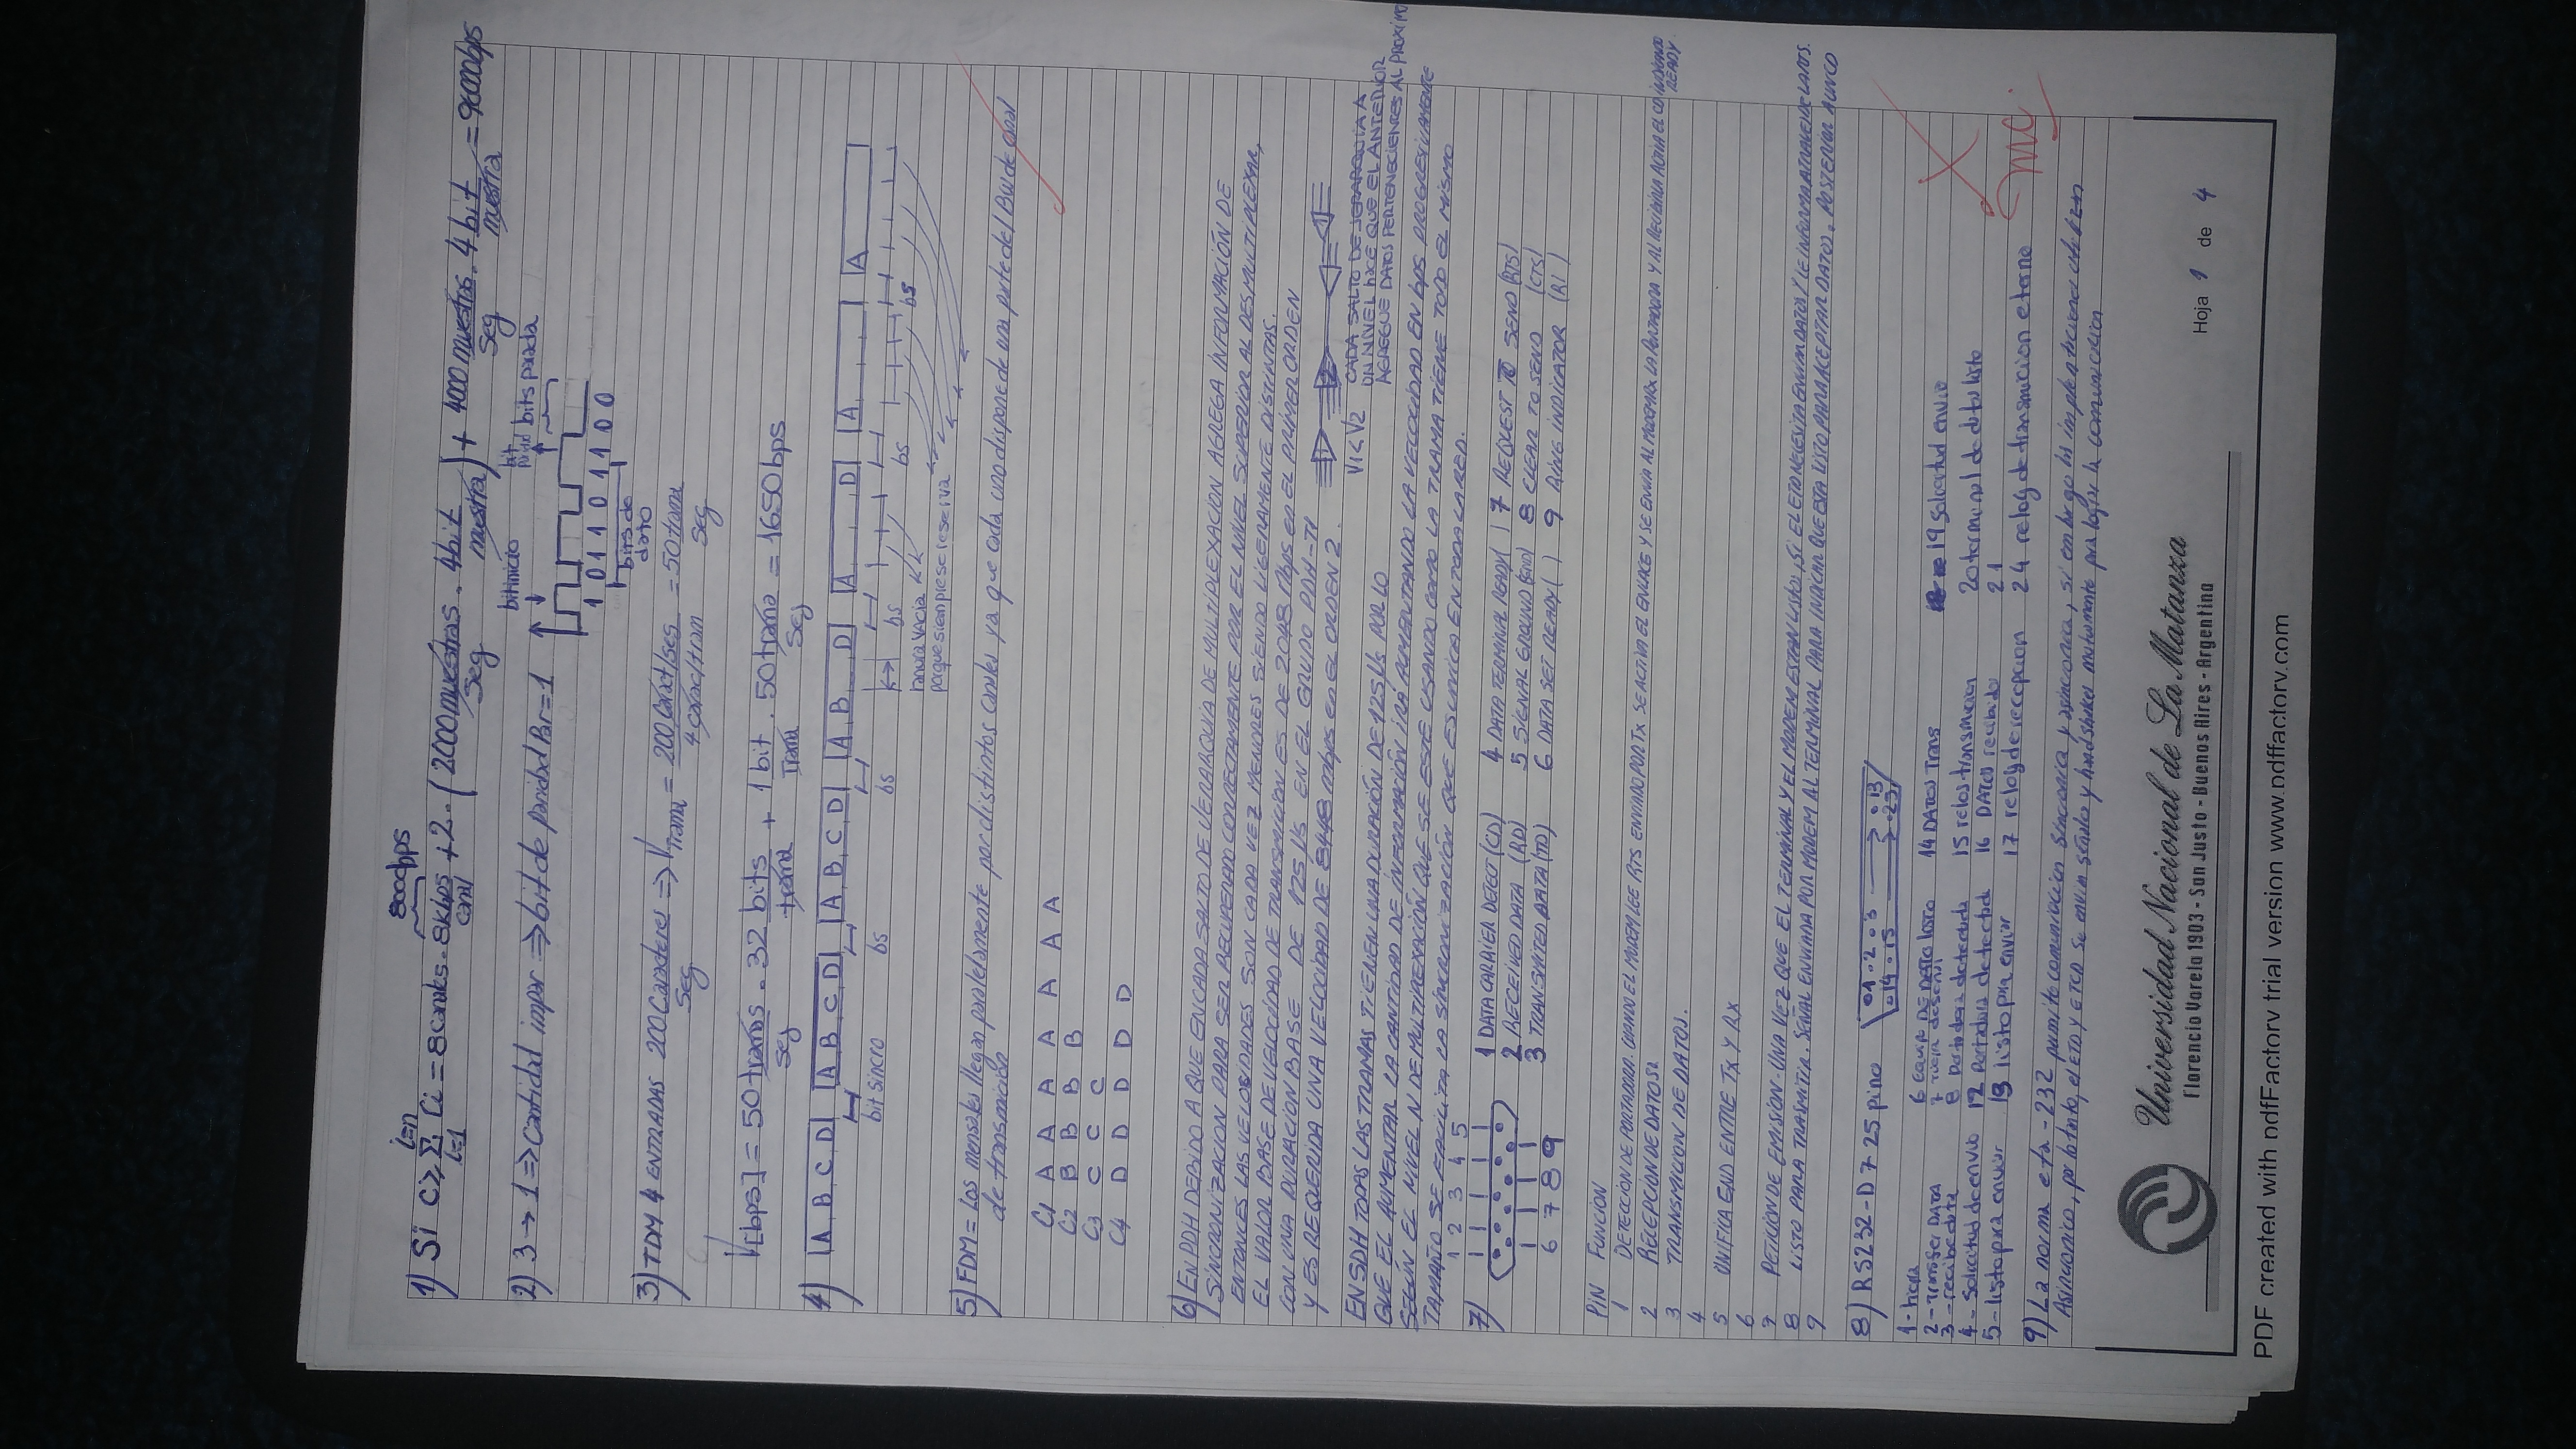 i=n
8000bps
1) Si C ≥ Σ Ci = 8canales . 8kbps + 2 . ( 2000 muestras . 4bit ) + 4000 muestras . 4 bit = 96000bps
i=1 canal Seg muestra Seg muestra
2) 3 → 1 ⇒ Cantidad impar ⇒ bit de paridad Par = 1
bit inicio bit paridad bits parada
1 0 1 1 0 1 1 0 0
bits de
dato
3) TDM 4 ENTRADAS 200 Caracteres ⇒ V Trama = 200 Caract/seg = 50 trama
Seg 4 carac/tram Seg
V[bps] = 50 tramas . 32 bits + 1 bit . 50 trama = 1650bps
Seg trama Trama Seg
4) A B C D A B C D A B C D A B D A D A A
bit sincro bs bs bs bs bs
ranura vacia
porque siempre se reserva
5) FDM = Los mensajes llegan paralelamente por distintos canales ya que cada uno dispone de una parte del BW de canal
de transmicion
C1 A A A A A A A
C2 B B B B
C3 C C C
C4 D D D D D
6) EN PDH DEBIDO A QUE EN CADA SALTO DE JERARQUIA DE MULTIPLEXACION AGREGA INFORMACIÓN DE
SINCRONIZACION PARA SER RECUPERADO CORRECTAMENTE POR EL NIVEL SUPERIOR AL DESMULTIPLEXAR,
ENTONCES LAS VELOCIDADES SON CADA VEZ MENORES SIENDO LIGERAMENTE DISTINTAS.
EL VALOR BASE DE VELOCIDAD DE TRANSMICION ES DE 2048 Mbps en EL PRIMER ORDEN
CON UNA DURACION BASE DE 125 µs EN EL GRUPO PDH-T1
Y ES REQUERIDA UNA VELOCIDAD DE 8448 mbps en EL ORDEN 2.
1 2 1
V1 < V2 CADA SALTO DE JERARQUIA A
UN NIVEL hACE QUE EL ANTERIOR
AGREGUE DATOS PERTENECIENTES AL PROXIMO
EN SDH TODAS LAS TRAMAS TIENEN UNA DURACIÓN DE 125 µs POR LO
QUE EL AUMENTAR LA CANTIDAD DE INFORMACIÓN IRÁ AUMENTANDO LA VELOCIDAD EN bps PROGRESIVAMENTE
SEGÚN EL NIVEL N DE MULTIPLEXACIÓN QUE SE ESTE USANDO COMO LA TRAMA TIENE TODO EL MISMO
TAMAÑO SE FACILITA LA SINCRONIZACIÓN QUE ES UNICA EN TODA LA RED.
7) 1 2 3 4 5
6 7 8 9
1 DATA CARRIER DETECT (CD) 4 DATA TERMINAL READY( ) 7 REQUEST TO SEND (RTS)
2 RECEIVED DATA (RD) 5 SIGNAL GROUND (GND) 8 CLEAR TO SEND (CTS)
3 TRANSMITED DATA (TD) 6 DATA SET READY( ) 9 RING INDICATOR (RI)
PIN FUNCION
1 DETECCION DE PORTADORA. CUANDO EL MODEM LEE RTS ENVIADO POR Tx SE ACTIVA EL ENLACE Y SE ENVIA AL MODEM Rx LA PORTADORA Y AL RECIBIRLA ACTIVA EL CD INDICANDO
READY.
2 RECEPCION DE DATOS.
3 TRANSMICION DE DATOS.
4
5 UNIFICA GND ENTRE Tx Y Rx
6
7 PETICION DE EMISION. UNA VEZ QUE EL TERMINAL Y EL MODEM ESTAN LISTOS, SI EL ETD NECESITA ENVIAR DATOS Y LE INFORMA ATRAVES DE LA RTS.
8 LISTO PARA TRASMITIR. SEÑAL ENVIADA POR MODEM AL TERMINAL PARA INDICAR QUE ESTA LISTO PARA ACEPTAR DATOS. POSTERIOR A UN CD
9
8) RS232-D 7 25 pino 1 . 2 . 3 → . 13
. 14 . 15 → . 25
1 - tierra 6 EQUIPO DE DATO listo 14 DATOS Trans 19 Solicitud envio
2 - Transfer DATA 7 tierra de señal 15 reloj transmicion 20 terminal de datos listo
3 - recibe data 8 portadora detectada 16 DATOS recibidos 21
4 - Solicitud de envio 12 Portadora detectada 17 reloj de recepcion 24 reloj de transmicion eterno
5 - listo pra enviar 13 listo pra enviar
MC
9) La norma eia -232 permite comunicacion sincronica y asincronica, si embargo las implentaciones utilizan
Asincronico, por lo tanto, el ETD y ETCD se envian señales y handshakes mutuamente pra lograr la comunicacion
Universidad Nacional de La Matanza
Florencio Varela 1903 - San Justo - Buenos Aires - Argentina
Hoja 1 de 4
PDF created with pdfFactory trial version www.pdffactory.com